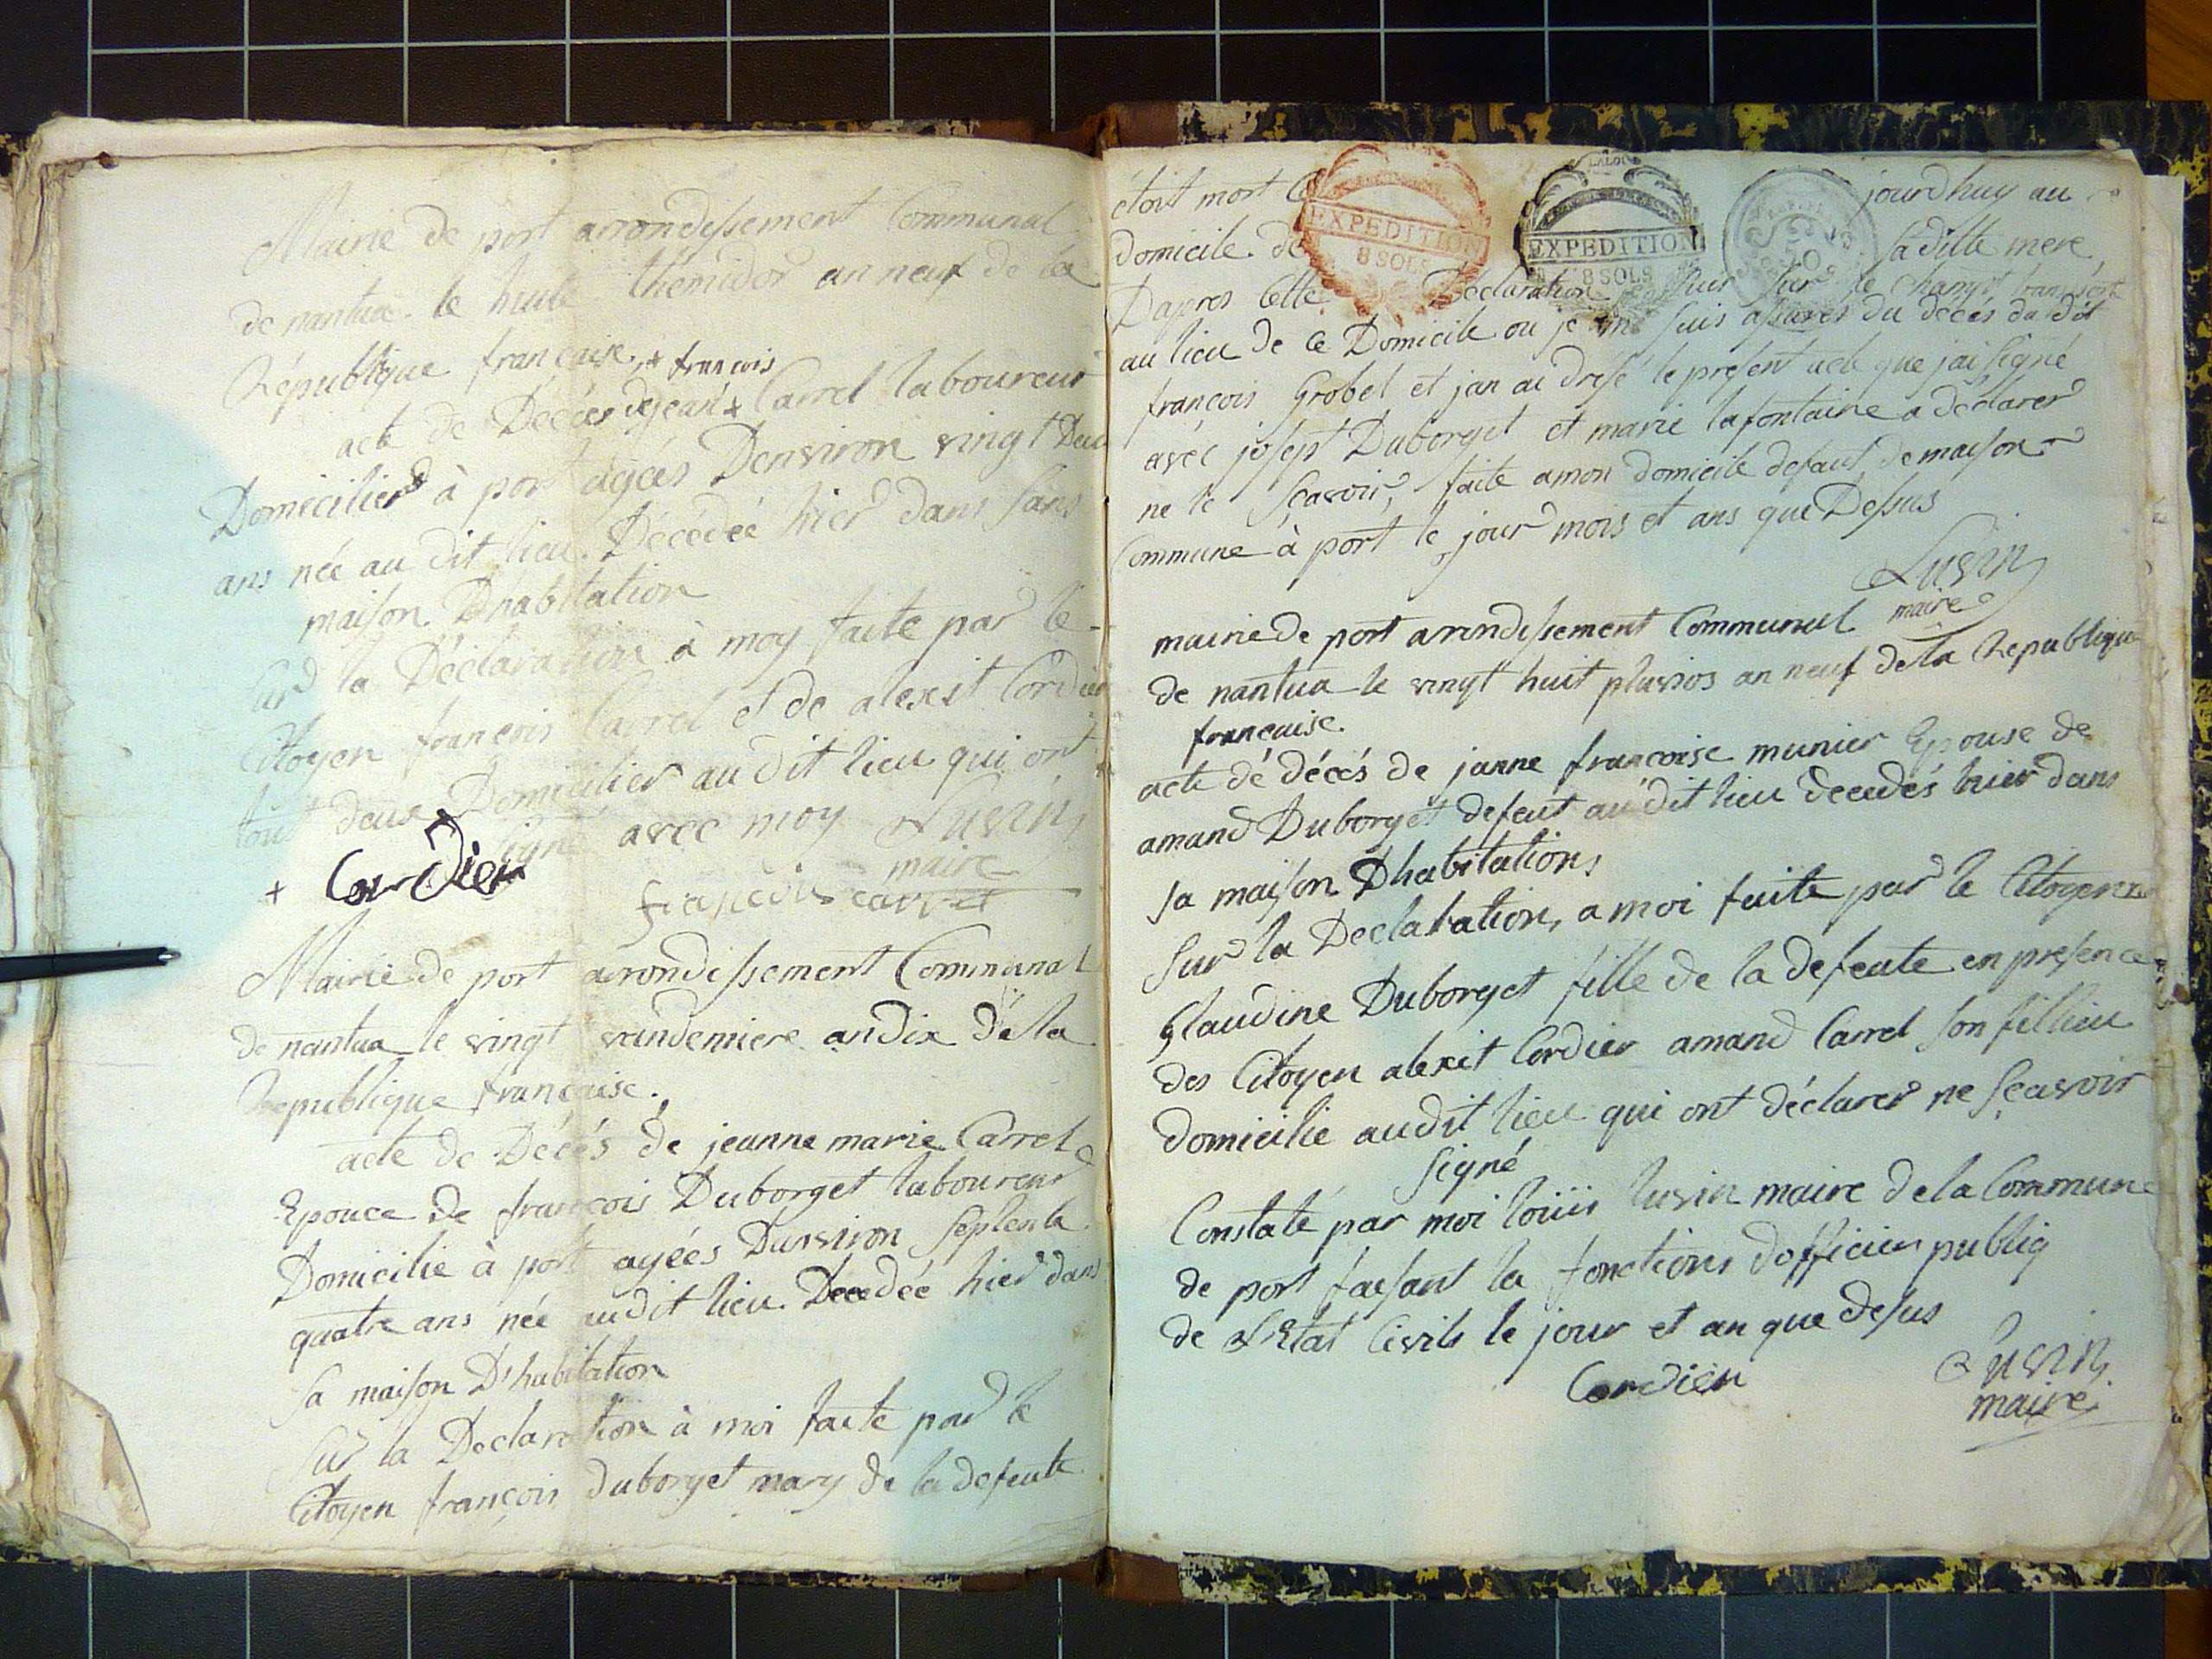 Mairie de port arrondissement Communal
de nantua le huit thermidor an neuf de la
République française. + françois
acte de Décés de jean + Carrel laboureur
Domicilier à port agées Denviron vingt Deux
ans née au dit lieu. Décédée hier dans sans
maison D'habitation
Sur la Déclaration à moy faite par le
Citoyen françois Carrel et de alexit Cordier
tout deux Domicilier au dit lieu qui ont
signé avec moy Luvin
maire
+ Cordier
françois carret
Mairie de port arrondissement Communal
de nantua le vingt vandemiere an dix dé la
Republique française.
acte de Décés de jeanne marie Carrel
Epouce de françois Duborget laboureur
Domicilie à port agéés Danviron septente
quatre ans née audit lieu. Decedée hier dans
sa maison D'habitation
Sur la Declaration à moi faite par le
Citoyen françois duborget mary de la defeute
étoit mort jourdhuy au
domicile de sa ditte mere
Dapres cette Déclaration suis sur le champt transporté
au lieu de ce Domicile ou je me suis assures du décés du dit
françois Grobel et jan ai dresé le present acte que jai signé
avec josept Duborget et marie lafontaine a déclarer
ne le sçavoir, faite a mon domicile defaut de maison
Commune à port le jour mois et ans que Dessus
Luvin
maire
mairie de port arrondissement Communal
de nantua le vingt huit pluvios an neuf de la Republique
française.
acte dé décés de janne françoise munier Epouse de
amand Duborget defeut au dit lieu decedés hier dans
sa maison Dhabitations
Sur la Declaration, a moi faite par le Citoyenne
Glaudine Duborget fille de la defeute en presence
des Citoyen alexit Cordier amand Carrel son fillieu
domicilie audit lieu qui ont déclarer ne sçavoir
signé
Constaté par moi loüis luvin maire de la Commune
de port faisant la fonctions dofficier publiq
de L'Etat Civils le jour et an que desus
Cordier
Luvin
maire
EXPEDITION
8 SOLS
LA LOI
EXPEDITION
8 SOLS